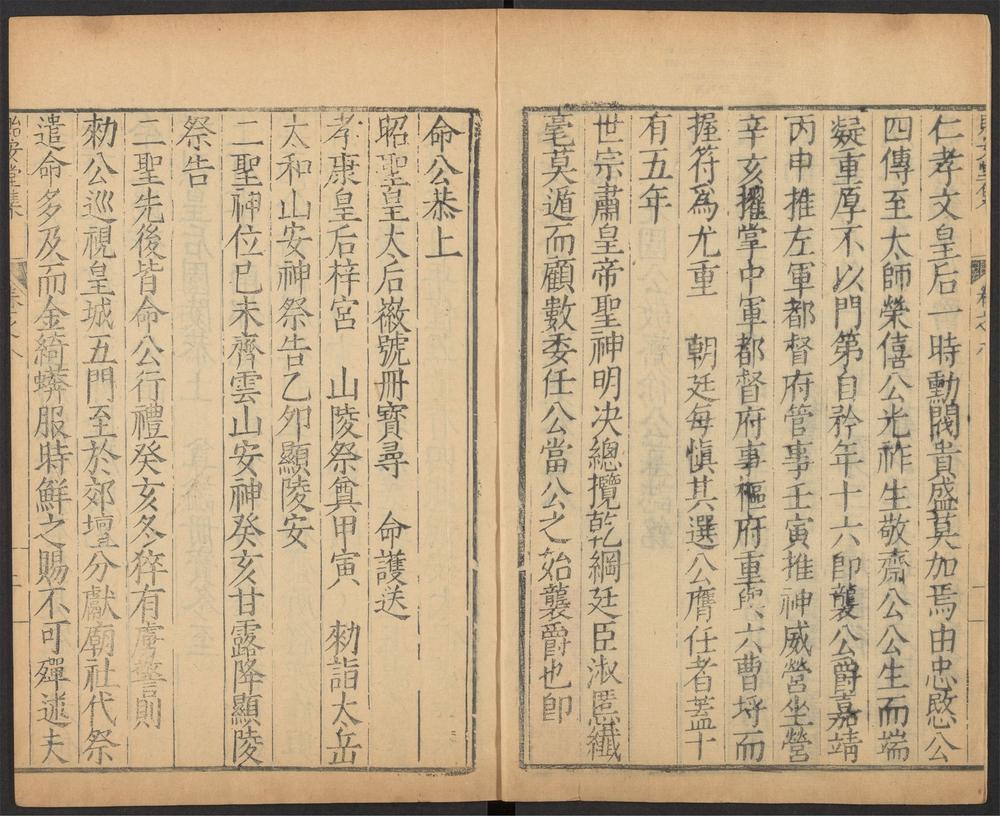 仁孝文皇后一時勳閥貴盛莫加焉由忠愍公
四傳至太師榮僖公光祚生敬齋公公生而端
凝重厚不以門第自矜年十六即襲公爵嘉靖
丙申推左軍都督府管事壬寅推神威營坐營
辛亥擢掌中軍都督府事樞府重與六曹埒而
握符爲尤重 朝廷每慎其選公膺任者蓋十
有五年
世宗肅皇帝聖神明决總攬乾綱廷臣淑慝纖
毫莫遁而顧數委任公當公之始襲爵也卽
命公恭上
昭聖皇太后徽號冊寶尋 命護送
孝康皇后梓宮 山陵祭奠甲寅 勑詣太岳
太和山安神祭告乙卯顯陵安
二聖神位已未齊雲山安神癸亥甘露降顯陵
祭告
二聖先後皆命公行禮癸亥冬猝有虜警則
勑公巡視皇城五門至於郊壇分獻廟社代祭
遣命多及而金綺蟒服時鮮之賜不可殫述夫